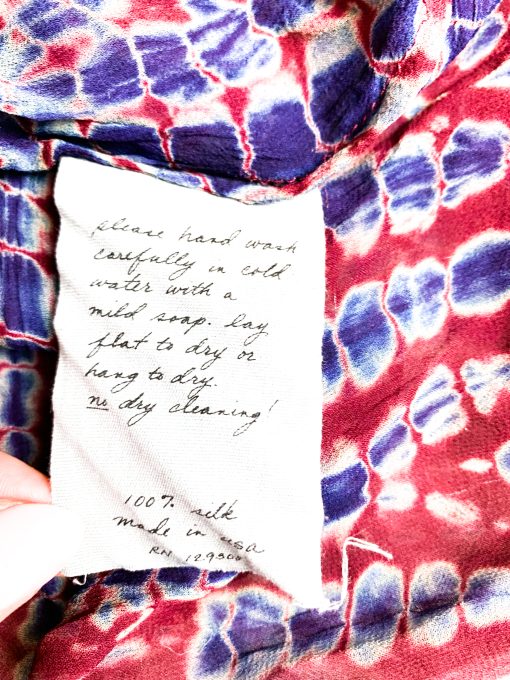 please hand wash
carefully in cold
water with a
mild soap. lay
flat to dry or
hang to dry.
no dry cleaning!
100% silk
made in usa
RN